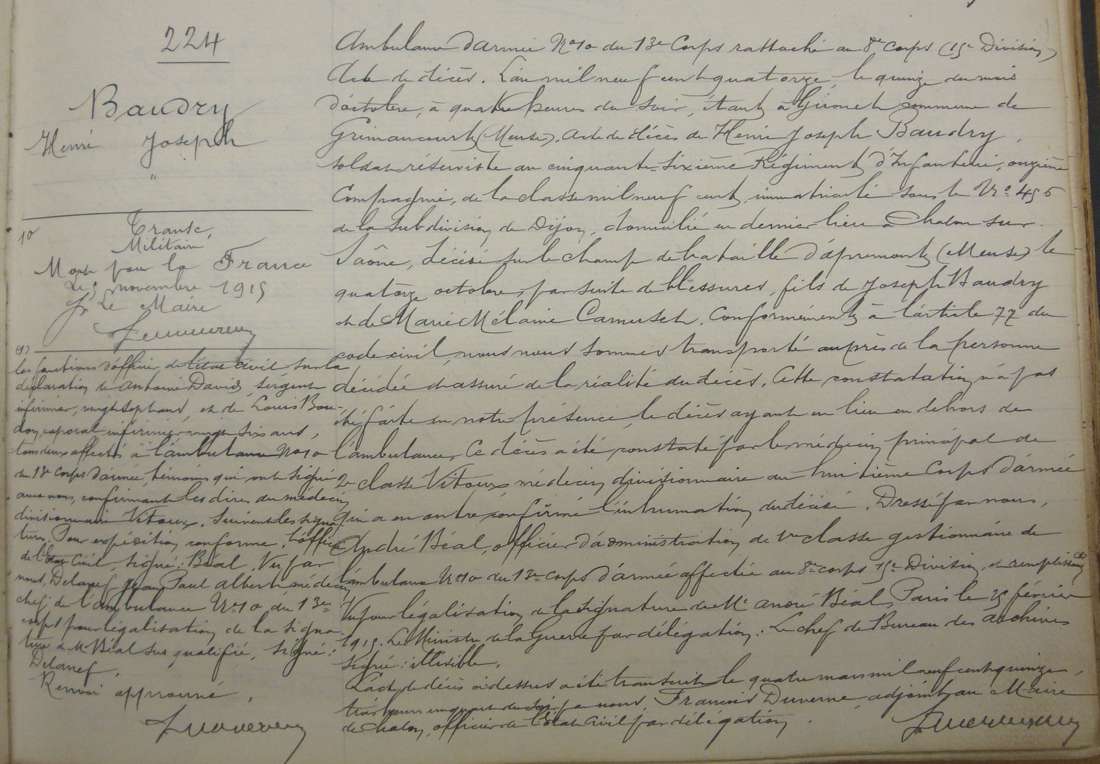 224
Baudry
Henri Joseph
"
Transc.
Militaire
Mort pour la France
Le 5 novembre 1915
Le Maire
les fonctions d'officier de l'état civil sur la
déclaration de Antoine David, sergent
infirmier, vingt sept ans, et de Louis Bou-
don, caporal infirmier vingt six ans,
tous deux affectés à l'ambulance No 10
du 13e Corps d'armée, témoins qui ont signé
avec nous, confirmant les dires du médecin
divisionnaire Vitoux. Suivent les signa-
tures. Pour expédition conforme. L'officier
de l'Etat Civil, signé: Béal. Vu par
nous, Delanef Jean Paul Albert médecin
chef de l'ambulance No 10 du 13e
corps pour légalisation de la signa
ture de Mr Béal sus qualifié, signé:
Delanef.
Renvoi approuvé.
Ambulance d'armée No 10 du 13e Corps rattaché au 8e Corps (15e Division)
Acte de décès. L'an mil neuf cent quatorze le quinze du mois
d'octobre, à quatre heures du soir, étant à Gironet commune de
Grimaucourt (Meuse). Acte de décès de Henri Joseph Baudry,
soldat réserviste au cinquante-sixième Régiment d'Infanterie, onzième
Compagnie, de la classe mil neuf cent, immatriculé sous le No 456
de la subdivision de Dijon, domicilié en dernier lieu à Chalon sur
Saône, décédé sur le champ de bataille d'Apremont (Meuse) le
quatorze octobre, par suite de blessures, fils de Joseph Baudry
et de Marie Mélanie Camuset. Conformément à l'article 77 du
code civil, nous nous sommes transporté auprès de la personne
décédée et assuré de la réalité du décès. Cette constatation n'a pas
été faite en notre présence, le décès ayant eu lieu en dehors de
l'ambulance. Ce décès a été constaté par le médecin principal de
2e classe Vitoux médecin divisionnaire au huitième Corps d'armée
qui a en outre confirmé l'inhumation du décédé. Dressé par nous,
André Béal, officier d'administration de 1re classe gestionnaire de
l'ambulance No 10 du 13e corps d'armée affectée au 8e corps 15e Division, et remplissant
Vu pour légalisation de la signature de Mr André Béal, Paris le 25 février
1915. Le Ministre de la Guerre par délégation: Le chef de Bureau des Archives
signé: illisible.
L'acte de décès ci dessus a été transcrit le quatre mars mil neuf cent quinze,
par nous, Francis Duverne, adjoint au Maire
de Chalon, officier de l'état civil par délégation.